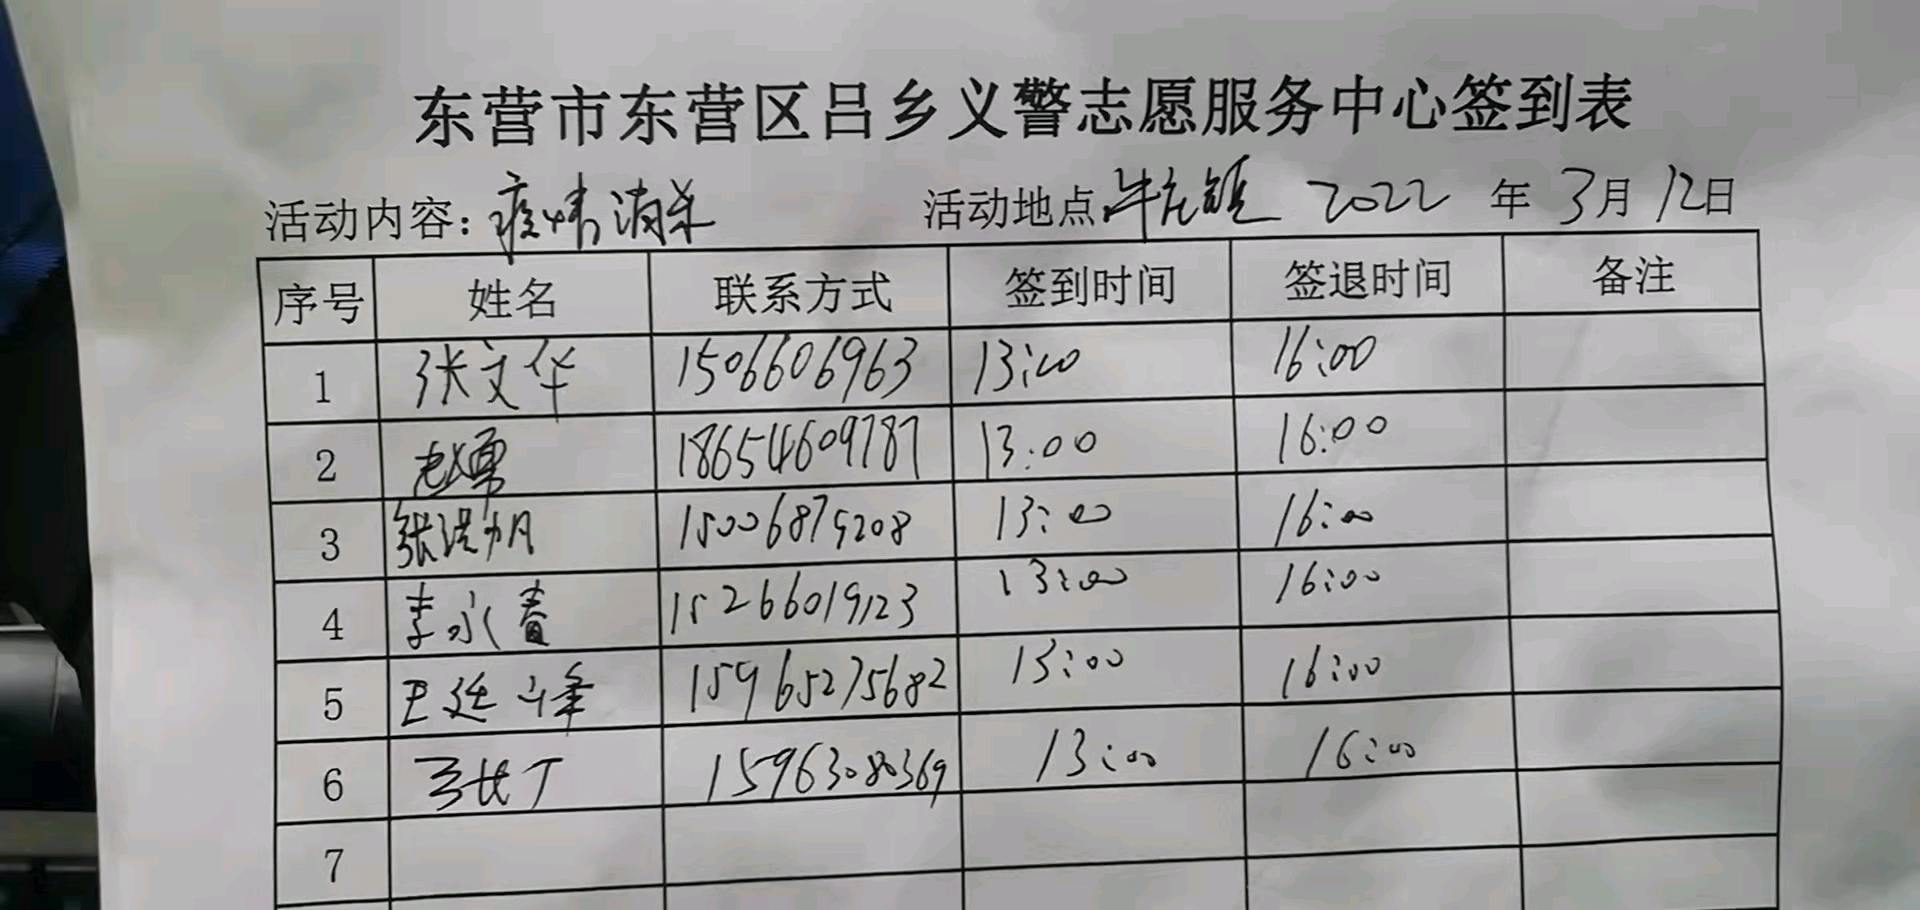 东营市东营区吕乡义警志愿服务中心签到表
活动内容：疫情消杀 活动地点 牛庄镇 2022 年 3月 12日
序号 姓名 联系方式 签到时间 签退时间 备注
1 张文华 1506606963 13:00 16:00
2 赵勇 18654609787 13:00 16:00
3 张洪帅 15006879208 13:00 16:00
4 李永春 15266019123 13:00 16:00
5 王廷峰 15965275682 13:00 16:00
6 15963080369 13:00 16:00
7